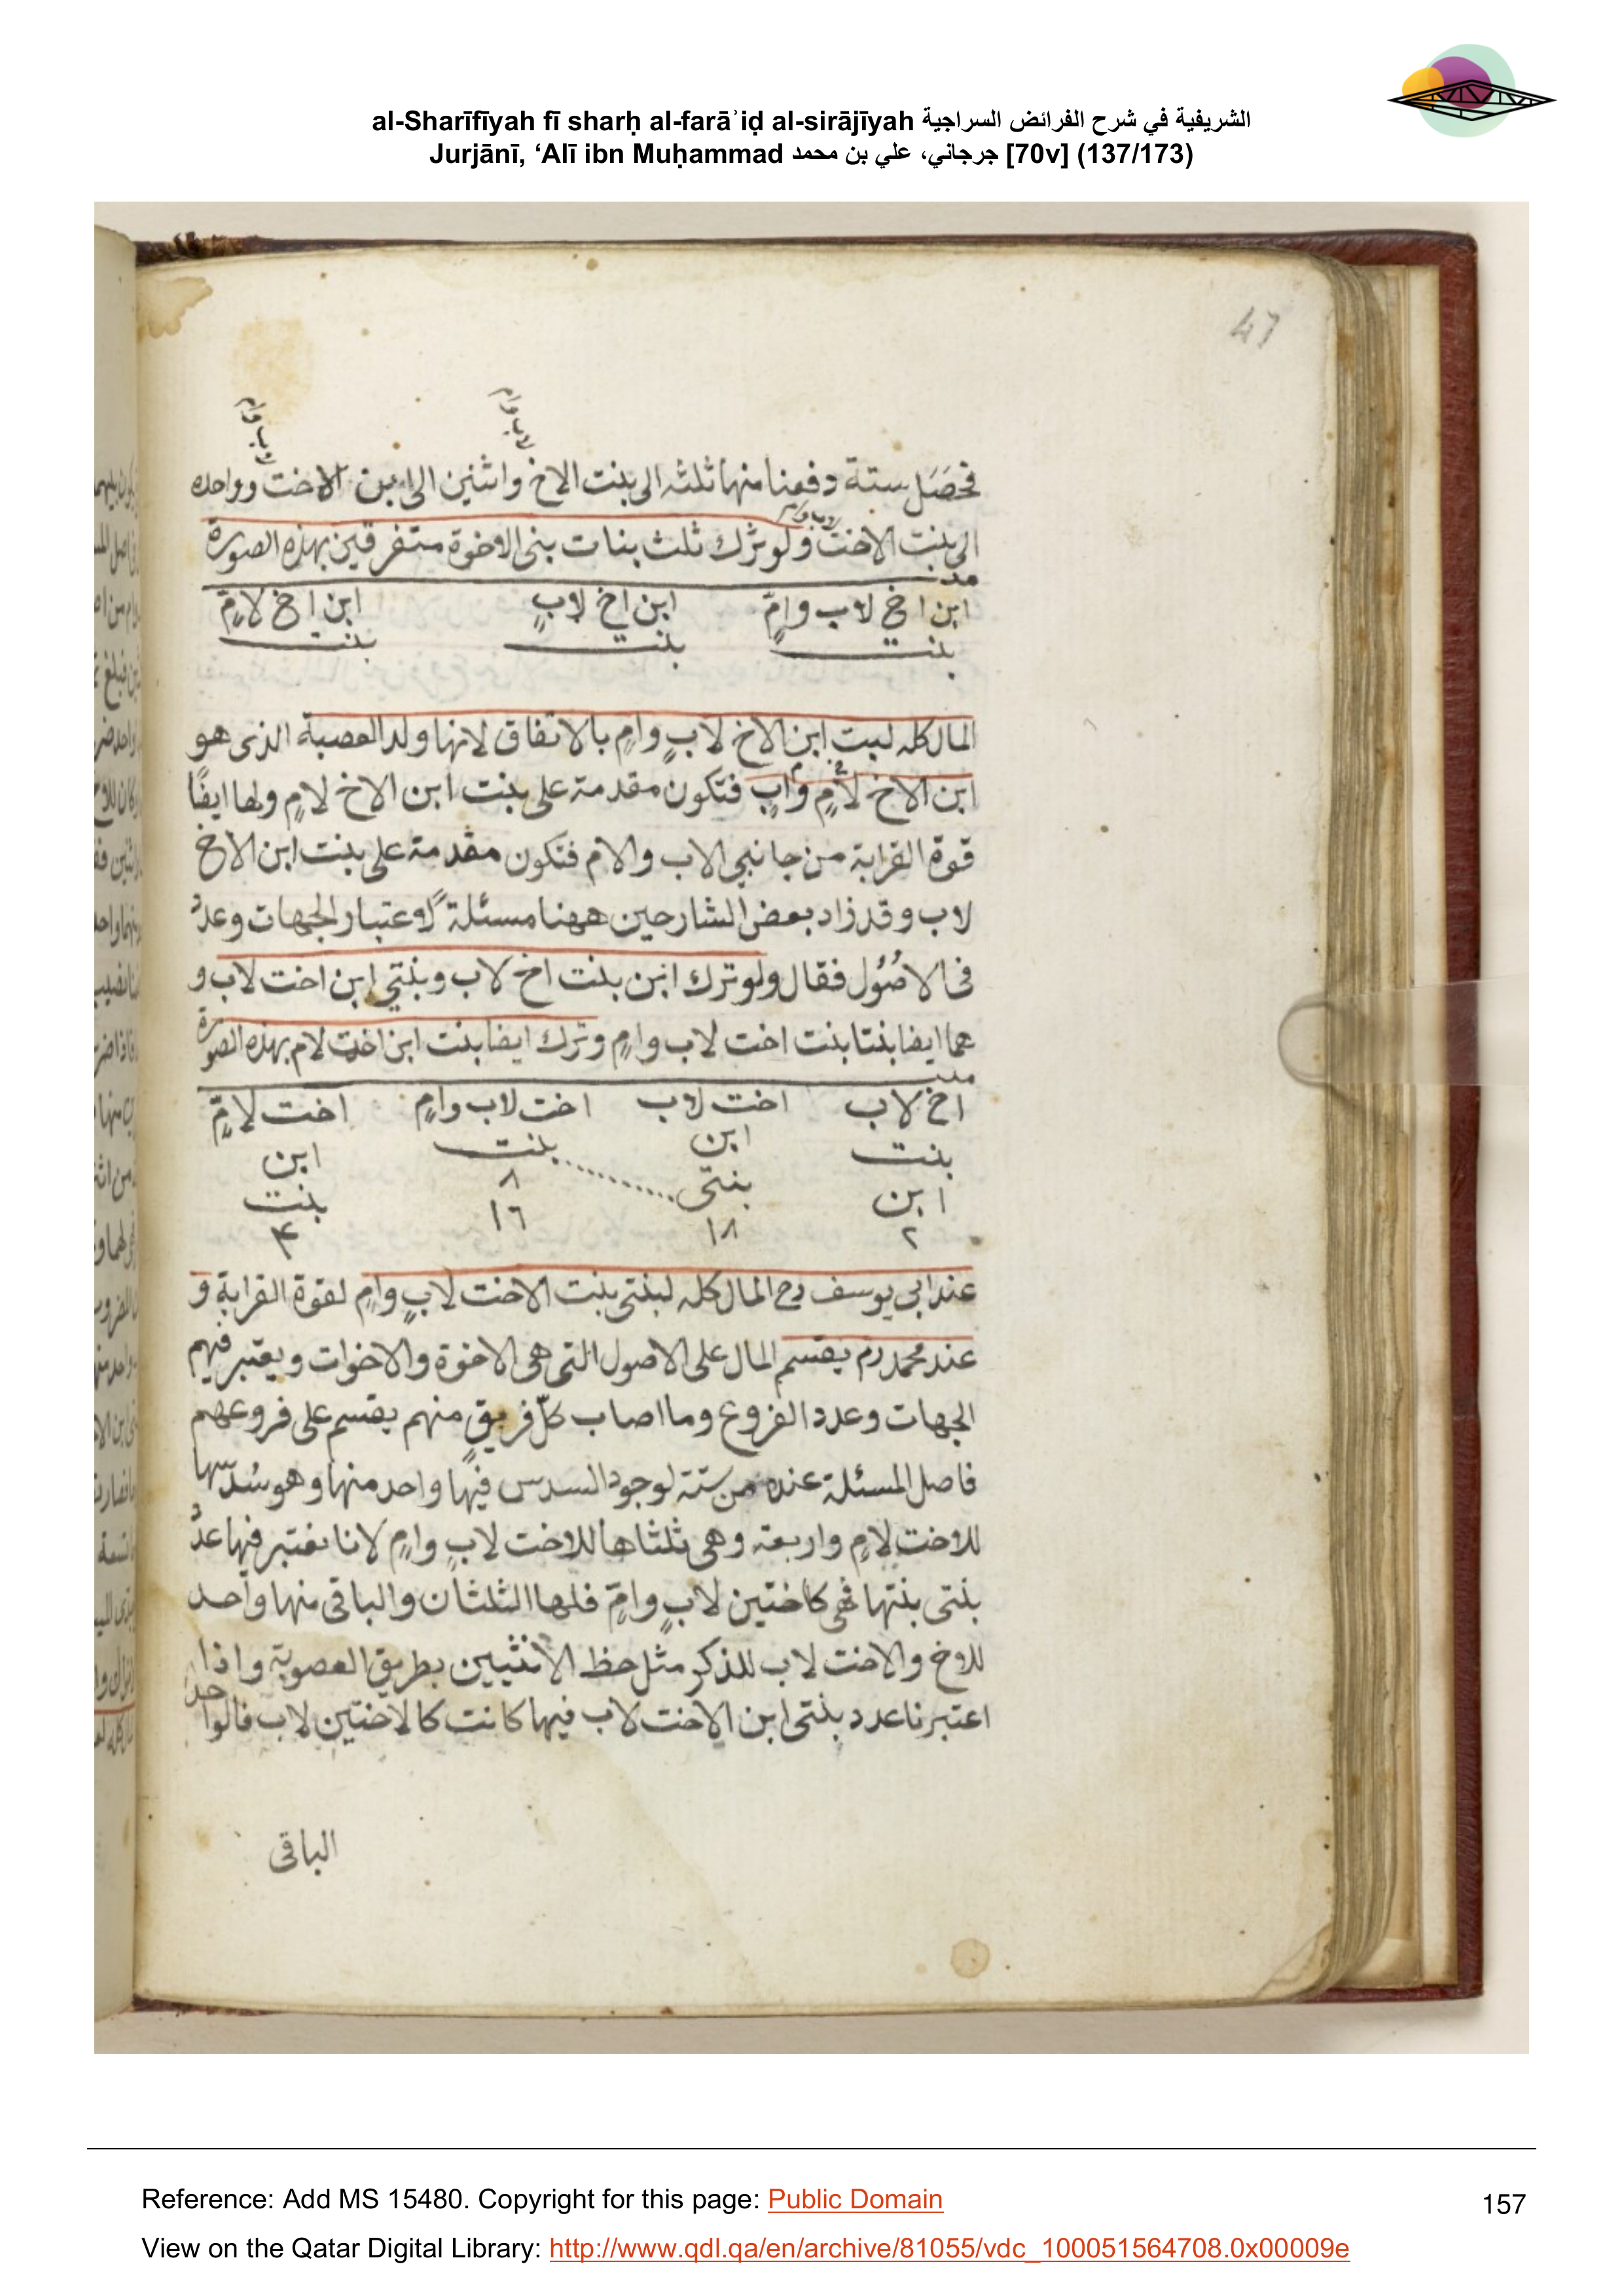 al-Sharīfīyah fī sharḥ al-farāʾiḍ al-sirājīyah الشريفية في شرح الفرائض السراجية
Jurjānī, ‘Alī ibn Muḥammad جرجاني، علي بن محمد [70v] (137/173)
47
لاب وام
لاب وام
فحصَل ستة دفعنا منها ثلثه الى بنت الاخ واثنين الى ابن الاخت وواحده
لاب وام
الى بنت الاخت ولو ترك ثلث بنات بنى الاخوة متفرقين بهذه الصورة
ابن اخ لاب وامٍّ ابن اخ لابٍ ابن اخ لامٍّ
بنت بنت بنت
المال كله لبنت ابن الاخ لابٍ وامٍ بالاتفاق لانها ولد العصبة الذى هو
ابن الاخ لأمٍ وابٍ فتكون مقدمة على بنت ابن الاخ لامٍ ولها ايضًا
قوة القرابة من جانبي الاب والام فتكون مقدمة على بنت ابن الاخ
لاب وقد زاد بعض الشارحين ههنا مسئلة لاعتبار الجهات وعدد
فى الاصُول فقال ولو ترك ابن بنت اخ لاب وبنتي ابن اخت لاب و
هما ايضا بنتا بنت اخت لاب وامٍ وترك ايضا بنت ابن اخت لام بهذه الصورة
اخ لاب اخت لاب اخت لاب وامٍ اخت لامٍّ
بنت ابن بنت ابن
ابن بنتى ٨ بنت
٢ ١٨ ١٦ ٤
عند ابي يوسف رح المال كله لبنتى بنت الاخت لابٍ وامٍ لقوة القرابة و
عند محمد رم يقسم المال على الاصول التى هى الاخوة والاخوات ويعتبر فيهم
الجهات وعدد الفروع وما اصاب كلّ فريقٍ منهم يقسم على فروعهم
فاصل المسئلة عنده من ستة لوجود السدس فيها واحد منها وهو سُدسها
للاخت لامٍ واربعة وهى ثلثاها للاخت لابٍ وامٍ لانا نعتبر فيها عدد
بنتى بنتها فهى كاختين لابٍ وامٍّ فلها الثلثان والباقى منها واحد
للاخ والاخت لاب للذكر مثل حظ الانثيين بطريق العصوبة واذا
اعتبرنا عدد بنتى ابن الاخت لاب فيها كانت كالاختين لاب فالواحد
الباقى
Reference: Add MS 15480. Copyright for this page: Public Domain
157
View on the Qatar Digital Library: http://www.qdl.qa/en/archive/81055/vdc_100051564708.0x00009e